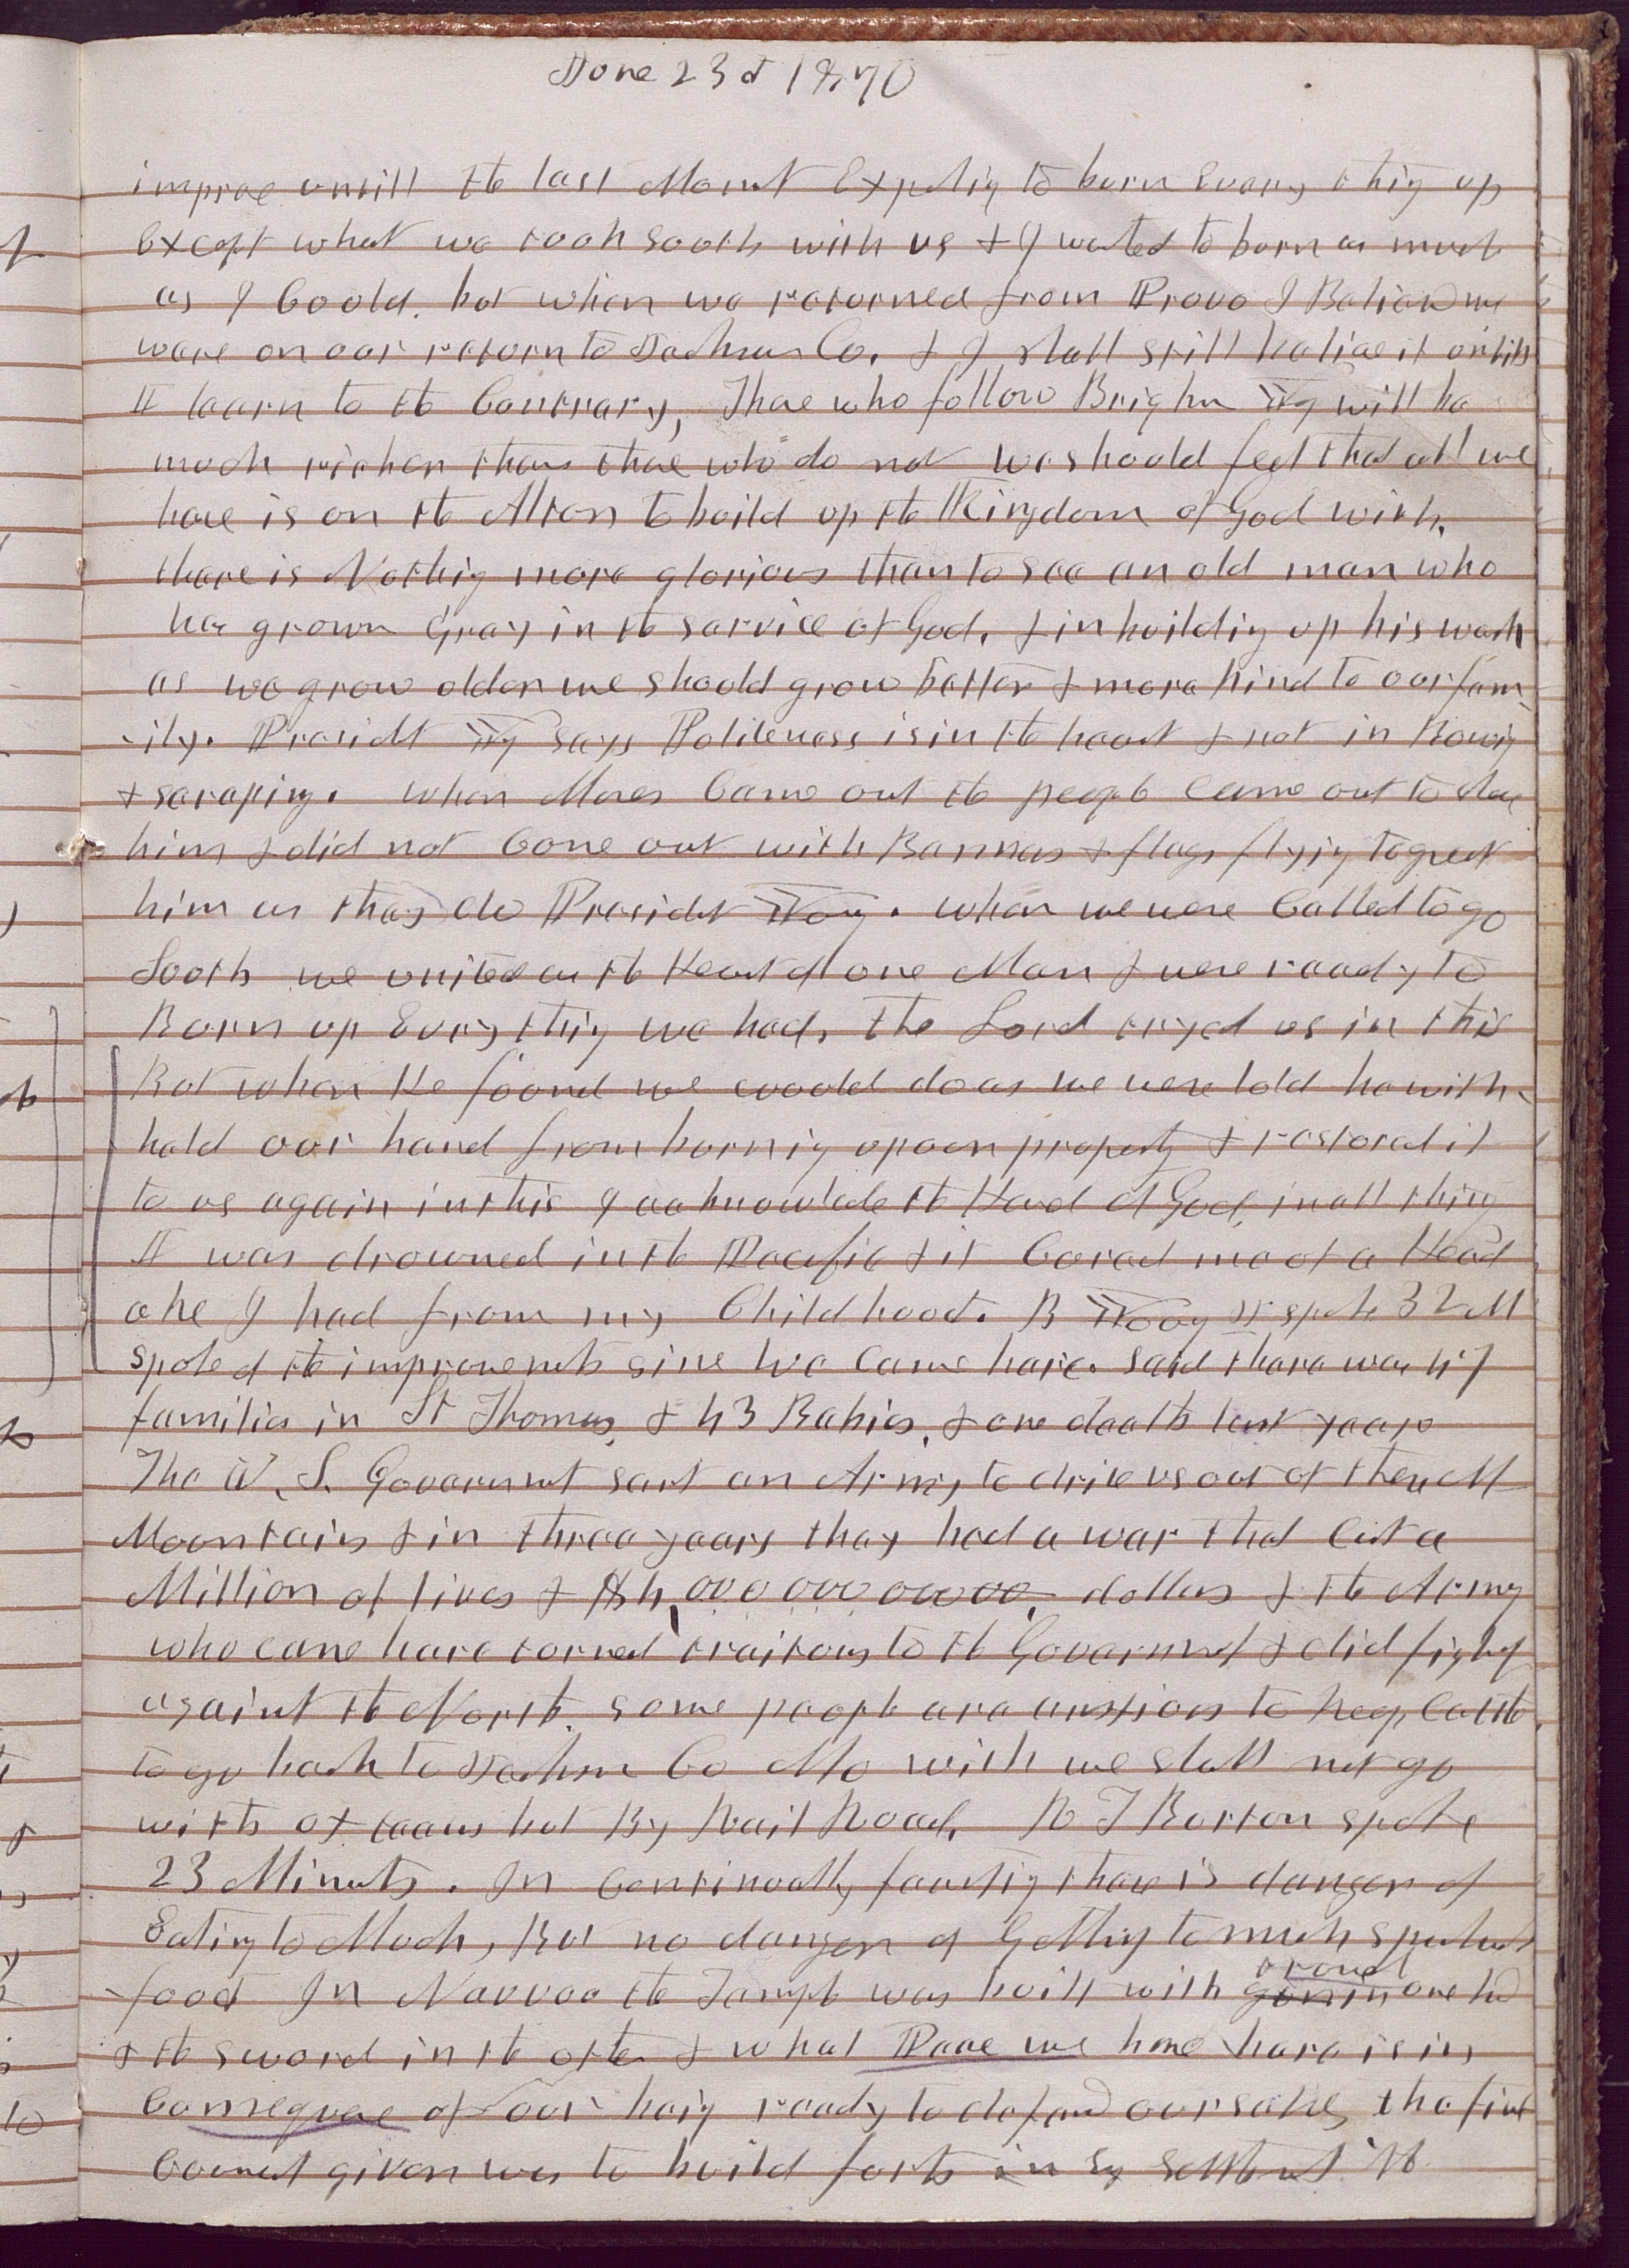 June 23d 1870
improve untill the last Moment Expecting to burn Every thing up
Except what we took South with us & I wanted to burn as much
as I Could. but when we returned from Provo I Believed we
ware on our return to Jackson Co. & I shall still believe it untill
I learn to the Contrary, Those who follow Brigham Yg will be
much richer than those who do not we should feel that all we
have is on the Altar to build up the Kingdom of God with.
there is Nothing more glorious than to see an old man who
has grown Gray in the service of God, & in building up his work
as we grow older we should grow better & more kind to our fam
-ily. Presidet Yg says Politeness is in the heart & not in Bowing
& scraping. when Moses Came out the people Came out to slay
him & did not Come out with Banners & flags flying to greet
him as they do President Young. when we were Called to go
South we united as the Heart of one Man & were ready to
Burn up Evry thing we had, the Lord tryed us in this
But when He found we would do as we were told he with-
held our hand from burning up our property & restored it
to us again in this I acknowlede the Hand of God in all thing
I was drowned in the Pacific & it Cured me of a Head
ake I had from my Childhood. B Young Jr spoke 32 M
spoke of the improvemets since we Came here. said there was 47
families in St Thomas, & 43 Babies, & one death last year
The U. S. Goverment sent an Army to drive us out of these M
Mountains & in three years they had a war that Cost a
Million of lives & $4,000 000 000 00, dollars & the Army
who came here turned traitors to the Goverment & did fight
against the North. some people are anxtious to keep Cattle
to go back to Jackson Co Mo with we shall not go
with ox teams but By Rail Road, R T Burton spoke
23 Minuts. In Continually feasting there is danger of
Eating to Much, But no danger of Getting to much spiritual
food In Nauvoo the Temple was built with gun in trowel one hd
& the sword in the other & what Peace we have here is in
Consequece of our being ready to defend oursalves, the first
Councel given was to build forts in Ey settlemet. it